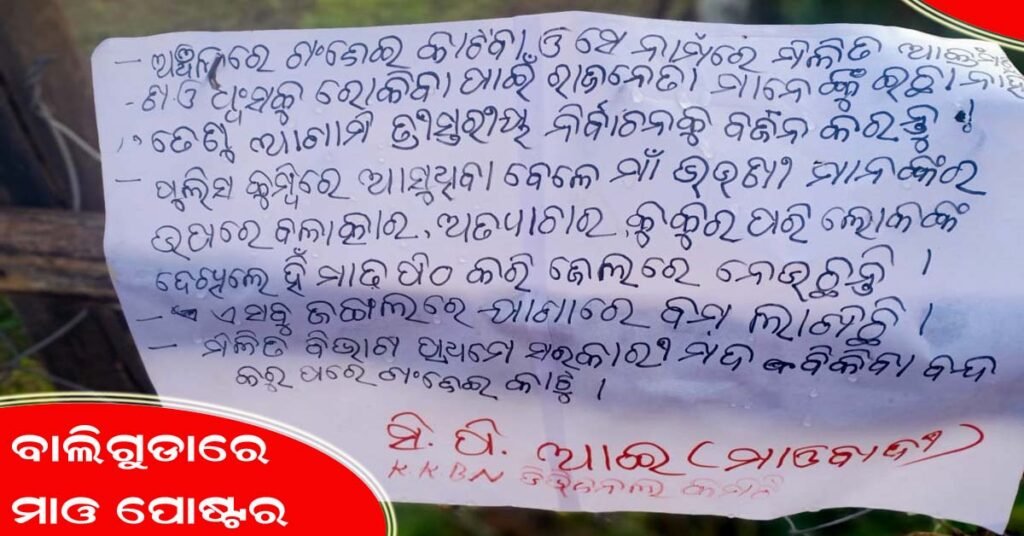 - ଅଞ୍ଚଳରେ ଗଂଜେଇ କାଟିବା ଓ ସେ ନାମଁରେ ମିଳିତ
- ଗ ଓ ଧ୍ୱଂସକୁ ରୋକିବା ପାଇଁ ରାଜନେତା ମାନେଙ୍କୁ ଇଛା ନାହିଁ
ତେଣୁ ଆଗାମି ତ୍ରୀସ୍ତରୀୟ ନିର୍ବାଚନକୁ ବର୍ଜନ କରନ୍ତୁ !
- ପୁଲିସ କୁମ୍ବିରେ ଆସୁଥିବା ବେଳେ ମାଁ ଭଉଣୀ ମାନଙ୍କର
ଉପରେ ବଲାତ୍କାର, ଅତ୍ୟାଚାର, କୁକୁର ପରି ଲୋକଙ୍କ
ଦେଖିଲେ ହିଁ ମାଢ ପିଠ କରି ଜେଲରେ ନେଉଛନ୍ତି ।
- ଏ ସବୁ ଜଙ୍ଗଲରେ ଯାଗାରେ ବମ୍ ଲାଗିଛି ।
- ମିଳିତ ବିଭାଗ ପ୍ରଥମେ ସରକାରୀ ମଦ ବିକିବା ବନ୍ଦ
କରୁ ପରେ ଗଂଜେଇ କାଟୁଁ ।
ସି. ପି. ଆଇ (ମାଓବାଦୀ)
K.K.B.N ଡିଭିଜନାଲ କମିଟି
ବାଲିଗୁଡାରେ
ମାଓ ପୋଷ୍ଟର